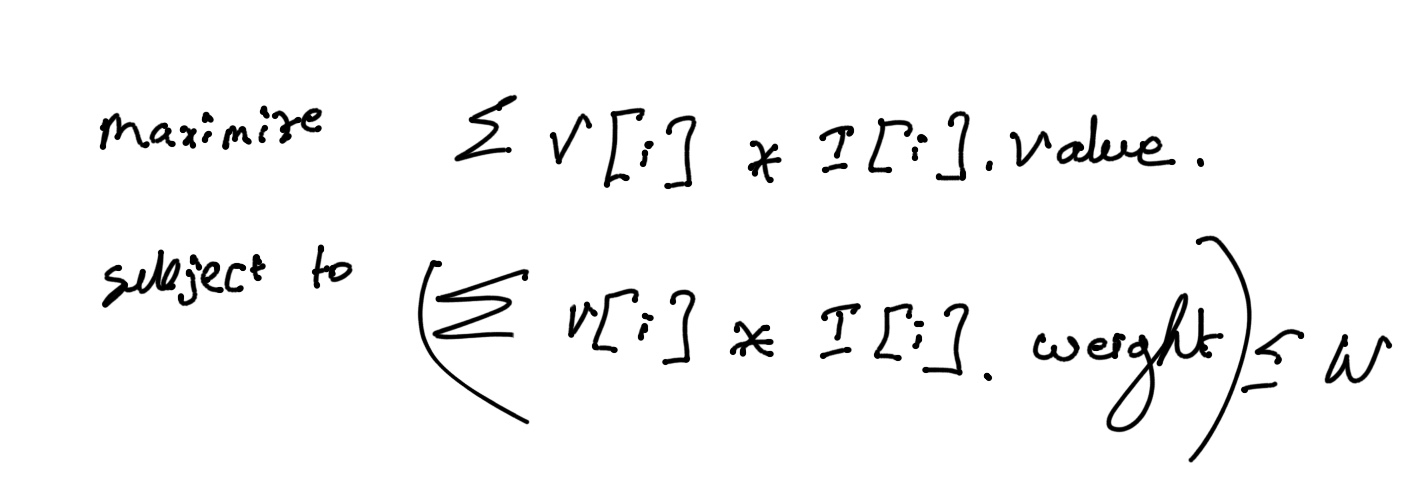 maximize Σ V[i] * I[i].value.
subject to (Σ V[i] * I[i]. weight) ≤ W